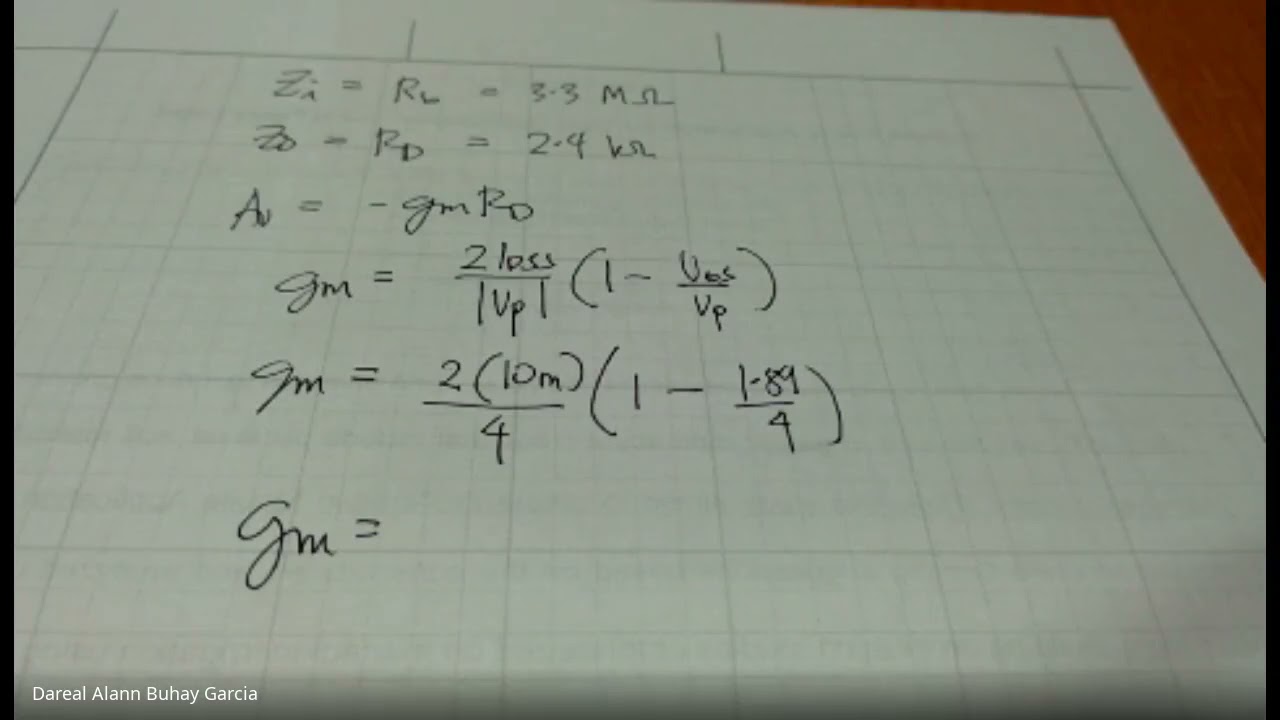 Zi = RL = 3.3 MΩ
Zo = RD = 2.4 kΩ
Av = -gmRD
gm = 2IDSS/|Vp| (1 - VGS/Vp)
gm = 2(10m)/4 (1 - 1.89/4)
gm =
Dareal Alann Buhay Garcia